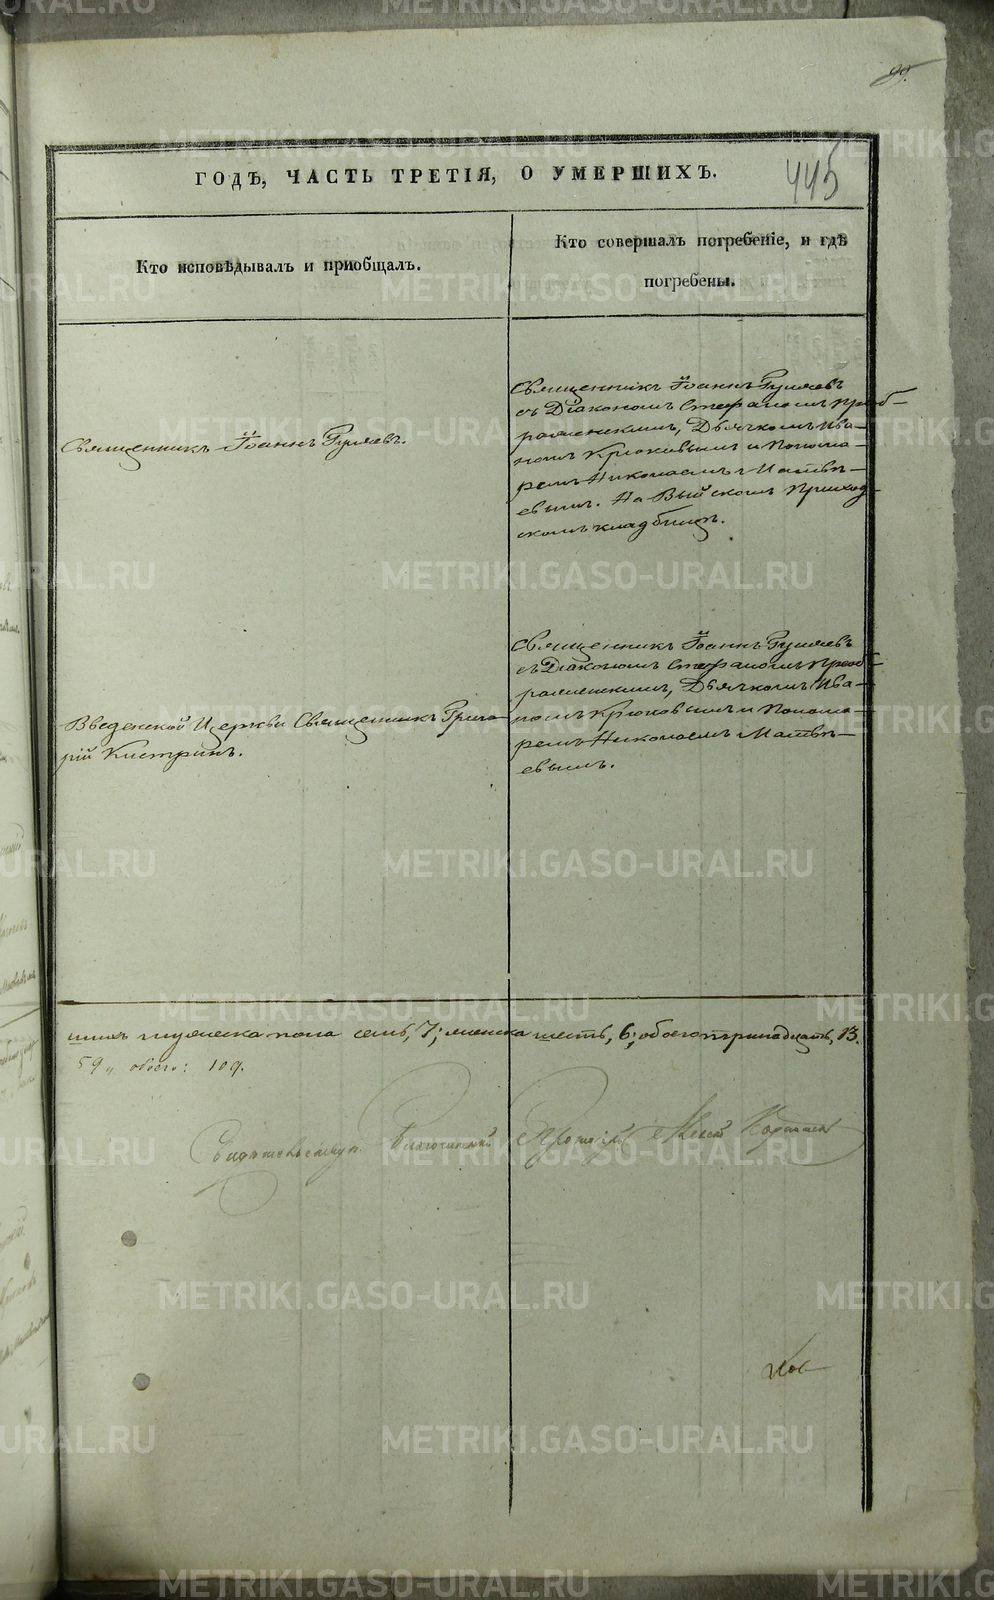 99.
445
ГОДЪ, ЧАСТЬ ТРЕТІЯ, О УМЕРШИХЪ.
Кто исповѣдывалъ и приобщалъ.
Кто совершалъ погребеніе, и гдѣ
погребены.
Священникъ Іоаннъ Гуляевъ.
Священникъ Іоаннъ Гуляевъ
съ Діакономъ Стефаномъ Преоб-
раженскимъ, Дьячкомъ Ива-
номъ Крюковымъ и Понома-
ремъ Николаемъ Матвѣ-
евымъ. На Выйскомъ Приход-
скомъ кладбищѣ.
Введенской Церкви Священникъ Григо-
рій Кистринъ.
Священникъ Іоаннъ Гуляевъ
съ Діакономъ Стефаномъ Преоб-
раженскимъ, Дьячкомъ Ива-
номъ Крюковымъ и Понома-
ремъ Николаемъ Матвѣ-
евымъ.
шихъ мужеска пола семь, 7; женска шесть, 6; обоего тринадцать, 13.
59, обоего: 109.
Благочинный Протоіерей
METRIKI.GASO-URAL.RU